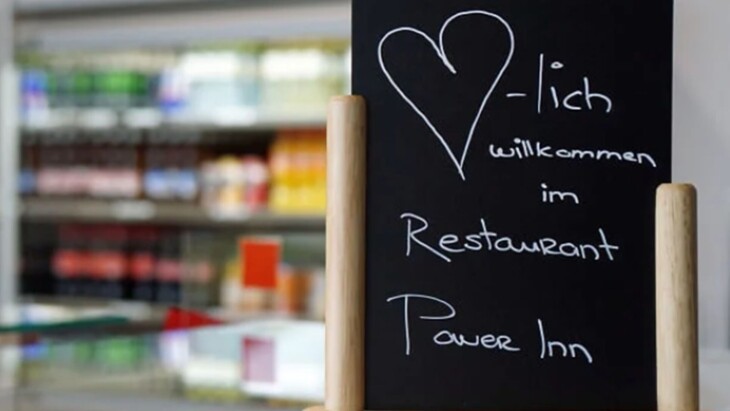 -lich
willkommen
im
Restaurant
Power Inn